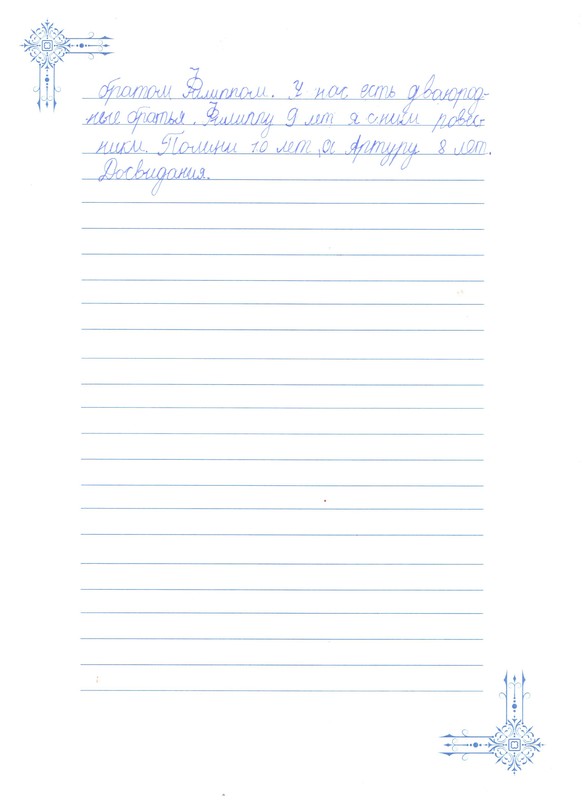 братом Филиппом. У нас есть двоюрод-
ные братья. Филиппу 9 лет я с ним ровес-
ники. Полини 10 лет, а Артуру 8 лет.
Досвидания.